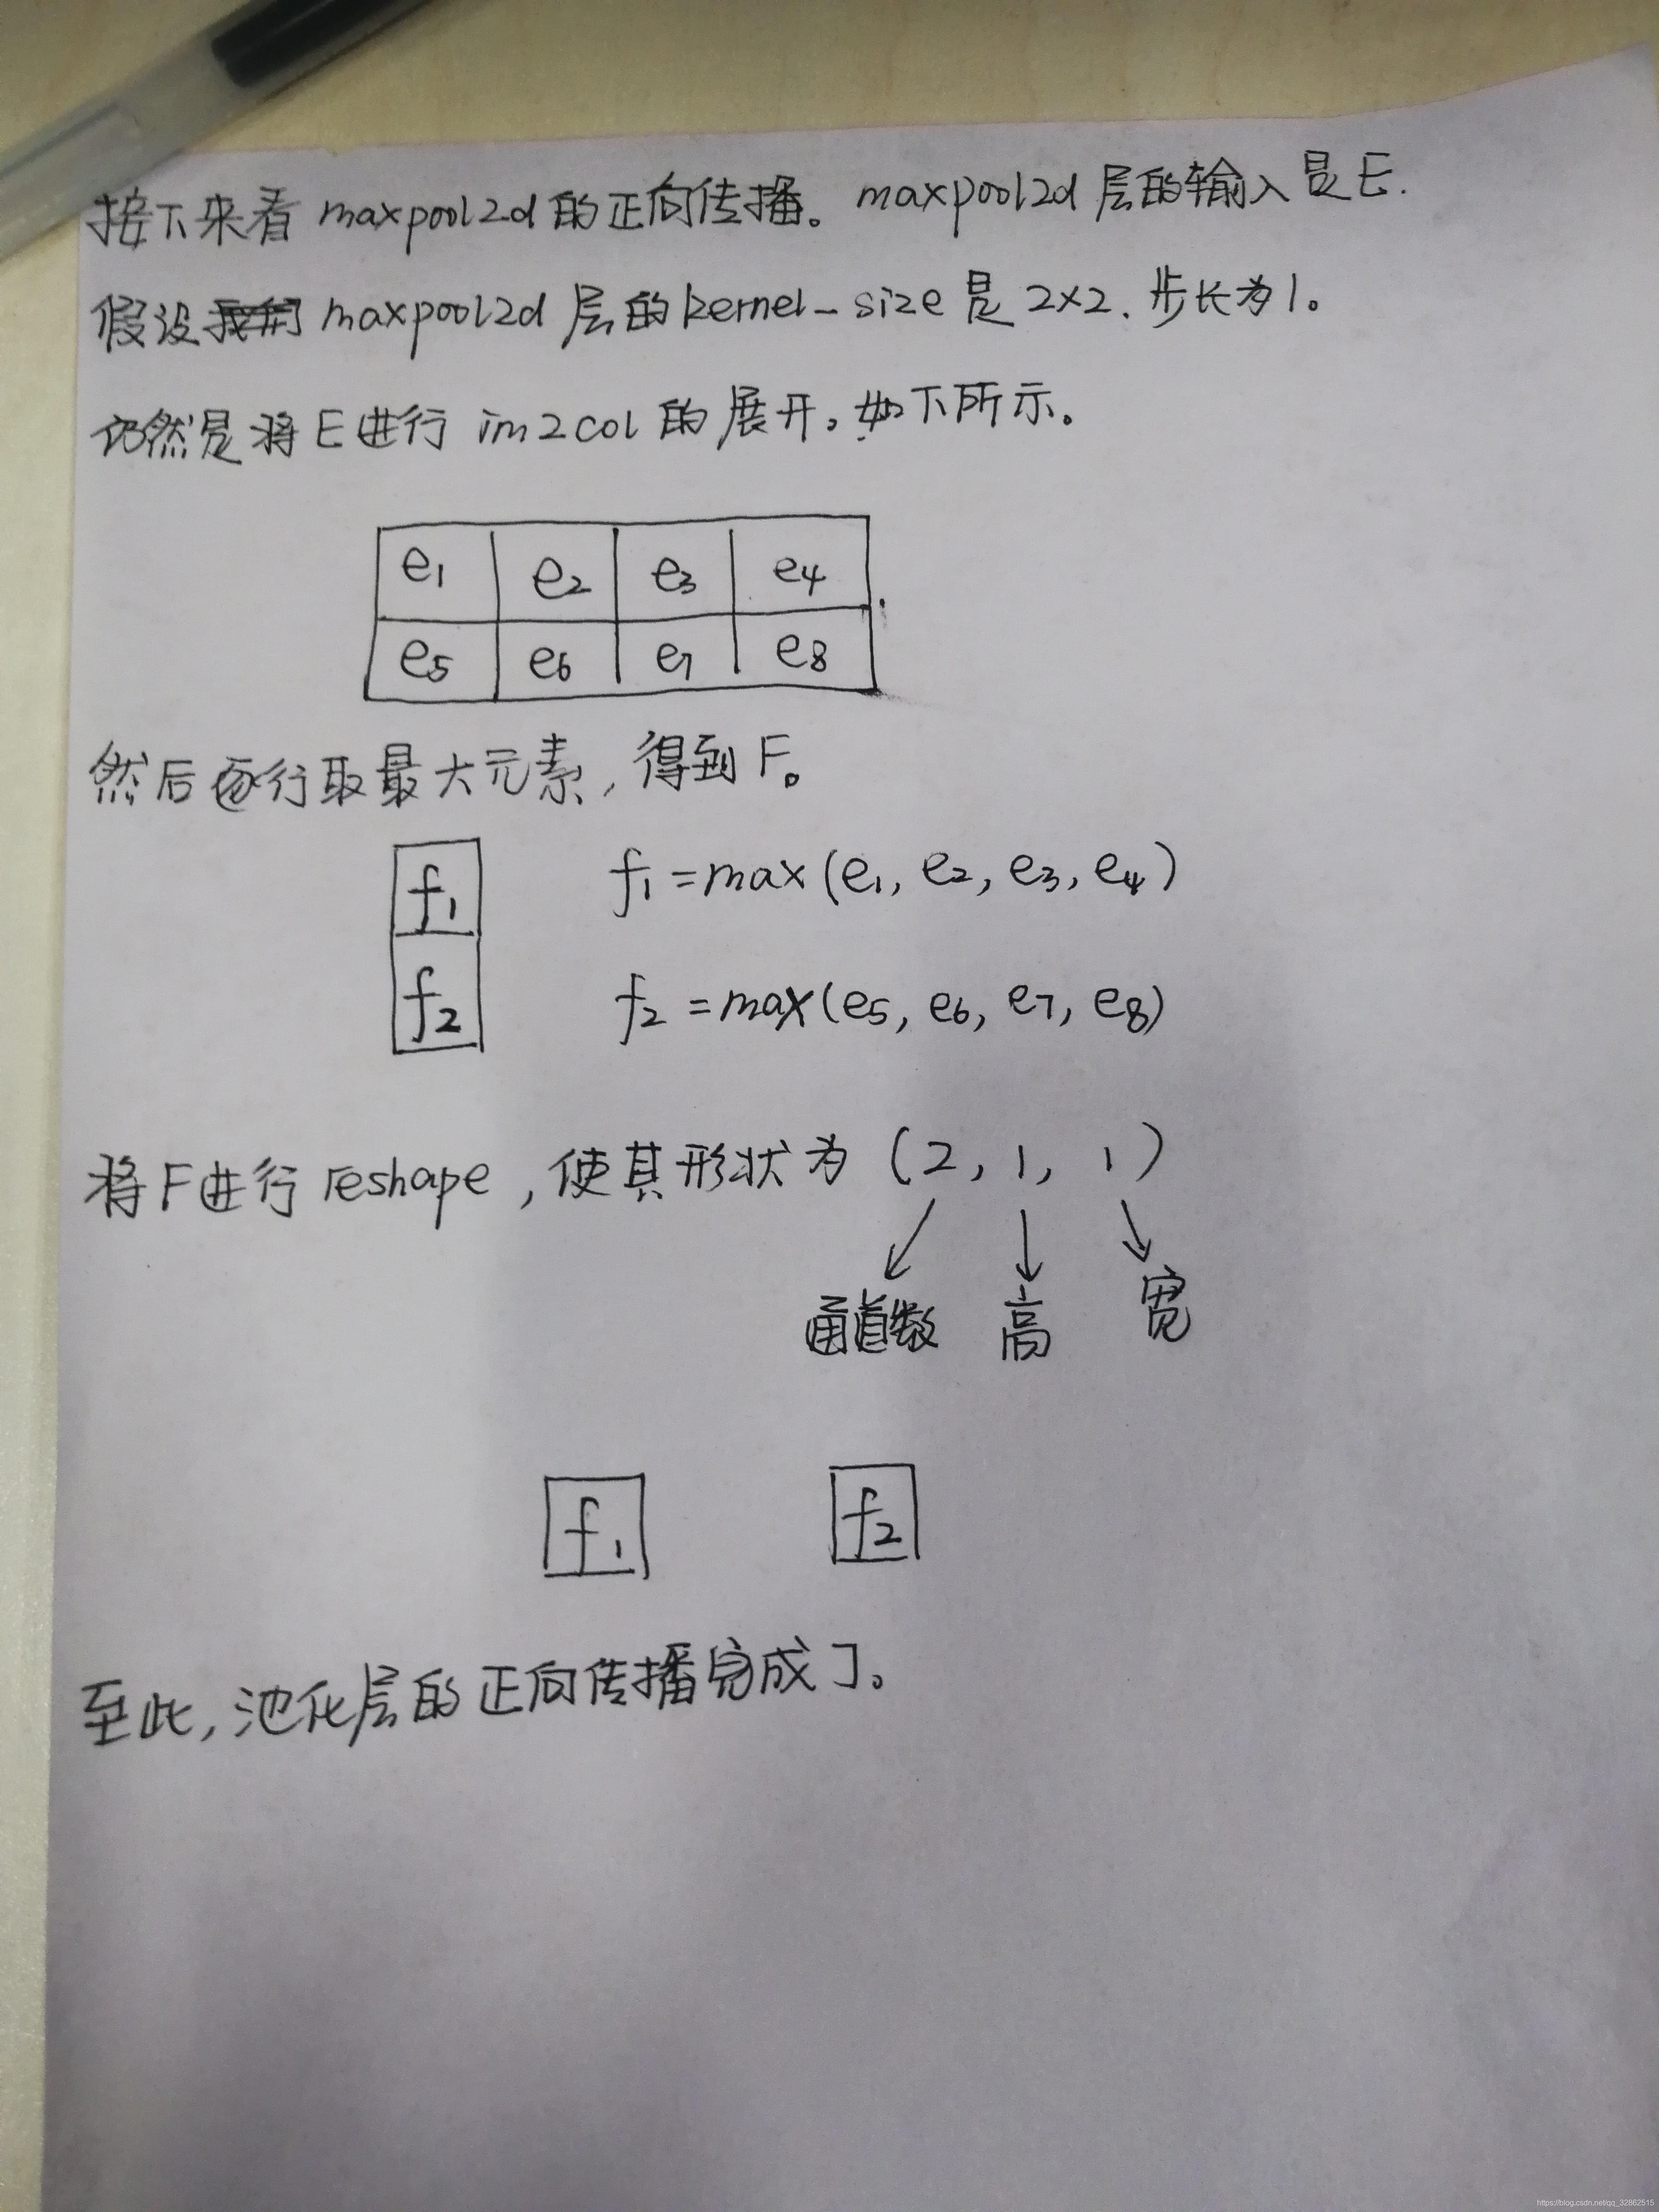 接下来看 maxpool2d 的正向传播。maxpool2d 层的输入是E.
假设 maxpool2d 层的 kernel_size 是 2×2. 步长为1。
仍然是将E进行 im2col 的展开。如下所示。
e1 e2 e3 e4
e5 e6 e7 e8
然后逐行取最大元素,得到F。
f1 f1 =max(e1, e2, e3, e4)
f2 f2 =max(e5, e6, e7, e8)
将F进行 reshape ,使其形状为 (2, 1, 1)
通道数 高 宽
f1 f2
至此,池化层的正向传播完成了。
https://blog.csdn.net/qq_32862515